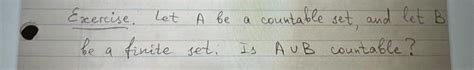 Exercise. Let A be a countable set, and let B
be a finite set. Is A∪B countable?